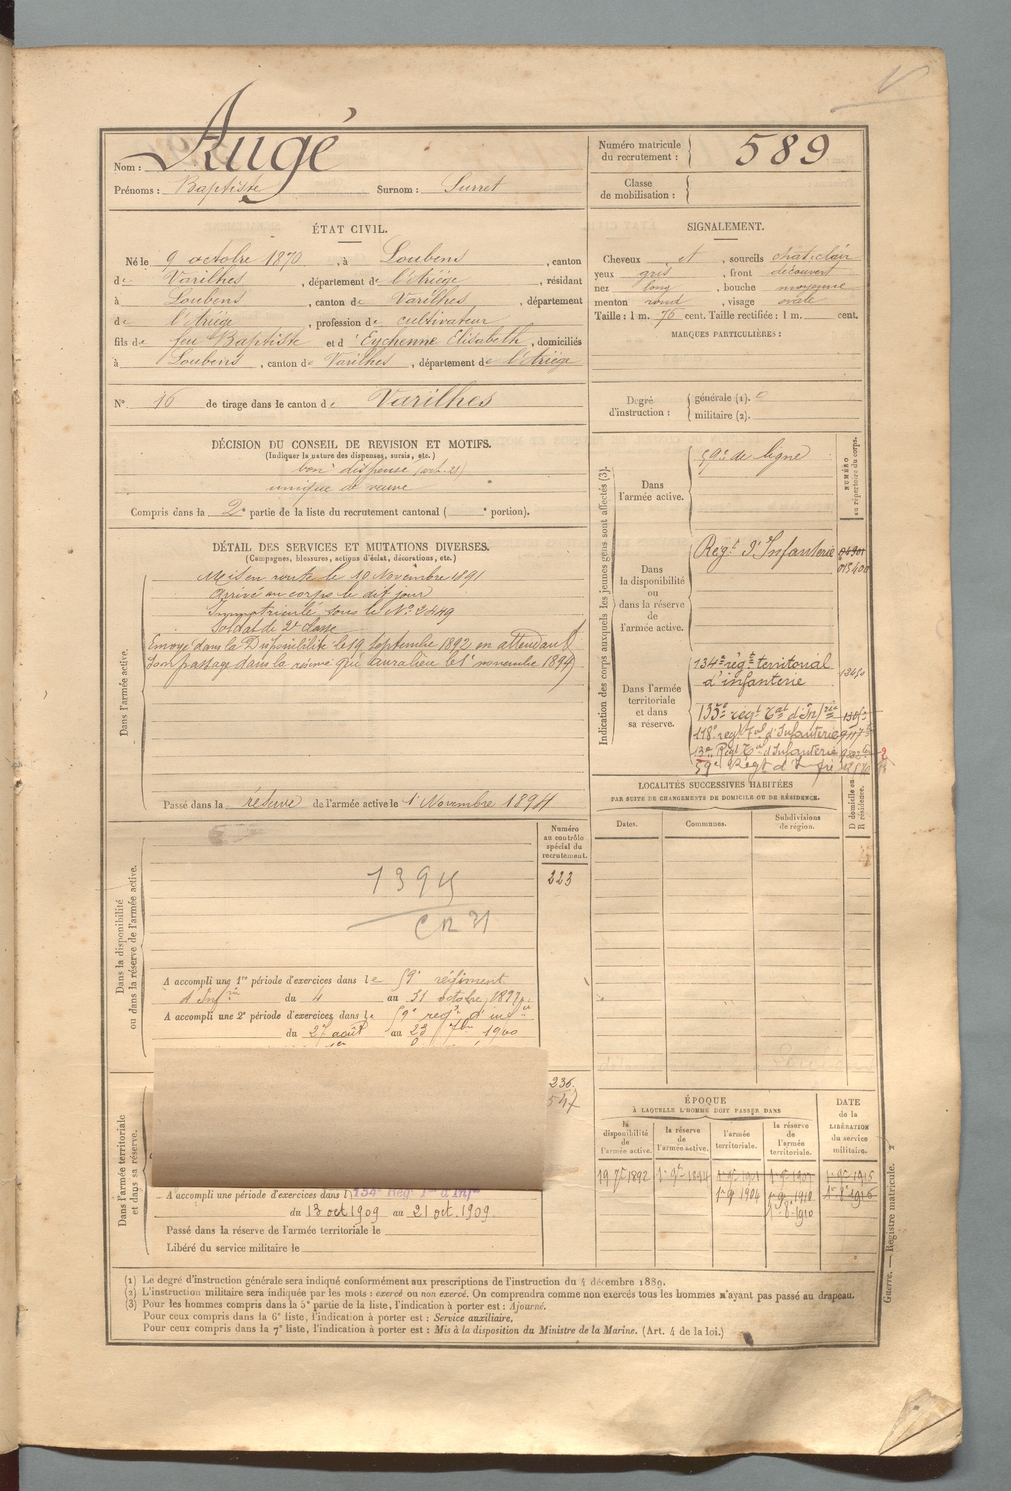 Nom : Augé
Prénoms : Baptiste Surnom : Surret
Numéro matricule du recrutement : 589
Classe de mobilisation :
ÉTAT CIVIL.
Né le 9 octobre 1870, à Loubens, canton
de Varilhes, département de l'Ariège, résidant
à Loubens, canton de Varilhes, département
de l'Ariège, profession de cultivateur
fils de feu Baptiste et d'Eychenne Elisabeth, domiciliés
à Loubens, canton de Varilhes, département de l'Ariège
N° 16 de tirage dans le canton de Varilhes
SIGNALEMENT.
Cheveux et, sourcils chat. clair
yeux gris, front découvert
nez long, bouche moyenne
menton rond, visage ovale
Taille : 1 m. 76 cent. Taille rectifiée : 1 m. cent.
MARQUES PARTICULIÈRES :
Degré d'instruction : générale (1).
militaire (2).
DÉCISION DU CONSEIL DE REVISION ET MOTIFS.
(Indiquer la nature des dispenses, sursis, etc.)
bon dispensé (art. 21)
unique de veuve
Compris dans la 2e partie de la liste du recrutement cantonal ( e portion).
DÉTAIL DES SERVICES ET MUTATIONS DIVERSES.
(Campagnes, blessures, actions d'éclat, décorations, etc.)
Dans l'armée active.
Mis en route le 10 Novembre 1891
Arrivé au corps le dit jour
Immatriculé sous le N° 2449
Soldat de 2e classe
Envoyé dans la Disponibilité le 19 septembre 1892 en attendant
son passage dans la réserve qui aura lieu le 1er novembre 1894
Passé dans la réserve de l'armée active le 1er Novembre 1894
Indication des corps auxquels les jeunes gens sont affectés (3).
NUMÉRO au répertoire du corps.
Dans l'armée active.
59e de ligne
Dans la disponibilité ou dans la réserve de l'armée active.
Régt d'Infanterie
Dans l'armée territoriale et dans sa réserve.
134e régt territorial
d'infanterie
135e régt Tal d'Infrie
118e régt Tal d'Infanterie
13e Régt Tal d'Infanterie
59e Régt d'Infrie
LOCALITÉS SUCCESSIVES HABITÉES
PAR SUITE DE CHANGEMENTS DE DOMICILE OU DE RÉSIDENCE.
Dates. Communes. Subdivisions de région. D domicile ou R résidence.
Dans la disponibilité ou dans la réserve de l'armée active.
Numéro au contrôle spécial du recrutement.
223
A accompli une 1re période d'exercices dans le 59e régiment
d'Infrie du 4 au 31 octobre 1897.
A accompli une 2e période d'exercices dans le 59e régt d'infie
du 27 août au 23 7bre 1900
236.
547
Dans l'armée territoriale et dans sa réserve.
A accompli une période d'exercices dans l 134e Régt Tal d'Infie
du 13 oct 1909 au 21 oct. 1909
Passé dans la réserve de l'armée territoriale le
Libéré du service militaire le
ÉPOQUE
À LAQUELLE L'HOMME DOIT PASSER DANS
la disponibilité de l'armée active. la réserve de l'armée active. l'armée territoriale. la réserve de l'armée territoriale. DATE de la LIBÉRATION du service militaire.
19 7e 1892 1er 9re 1894
1er 9 1904 1er 9 1910
1er 8 1910
Guerre. — Registre matricule.
(1) Le degré d'instruction générale sera indiqué conformément aux prescriptions de l'instruction du 4 décembre 1889.
(2) L'instruction militaire sera indiquée par les mots : exercé ou non exercé. On comprendra comme non exercés tous les hommes n'ayant pas passé au drapeau.
(3) Pour les hommes compris dans la 5e partie de la liste, l'indication à porter est : Ajourné.
Pour ceux compris dans la 6e liste, l'indication à porter est : Service auxiliaire.
Pour ceux compris dans la 7e liste, l'indication à porter est : Mis à la disposition du Ministre de la Marine. (Art. 4 de la loi.)